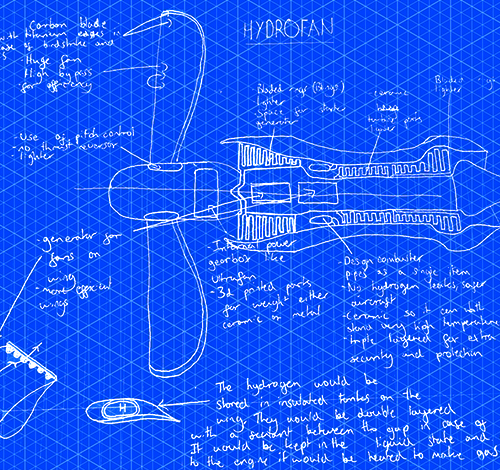 HYDROFAN
Carbon blade
with titanium edges in
case of birdstrike and
Huge fan
High bypass
for efficiency
- Use of pitch control
- no thrust reversor
- lighter
Bladed rings (Blings)
lighter
Space for starter
generator
ceramic
turbine
lighter
Bladed
lighter
- generator for
fans on
wing
- more efficient
wings
- Internal power
gearbox like
Ultrafan
- 3d printed parts
for weight either
ceramic or metal
- Design combuster
pipes as a single item
- No hydrogen leakes, safer
aircraft
- Ceramic so it can with
stand very high temperature
- triple layered for extra
security and protection
H
The hydrogen would be
stored in insulated tankes on the
wing. They would be double layered
with a sealant between the gap in case of
It would be kept in the liquid state and
to the engine it would be heated to make gas